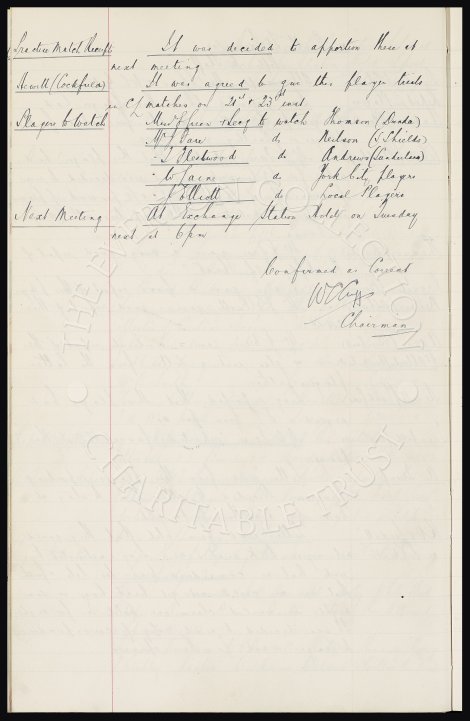 Practice Match Receipts It was decided to apportion these at
next meeting
Hewitt (Cockfield) It was agreed to give this player trials
in C/ matches on 21st & 23rd inst
Players to Watch Mess Green & to watch Thomson (Dundee)
Mr Gore do Neilson (S Shields)
" Fleetwood do Andrews (Sunderland)
" do York City players
" Elliott do Local Players
Next Meeting At Exchange Station Hotel on Tuesday
next at 6 pm
Confirmed as Correct
W C Cuff
Chairman
THE EVERTON COLLECTION
CHARITABLE TRUST